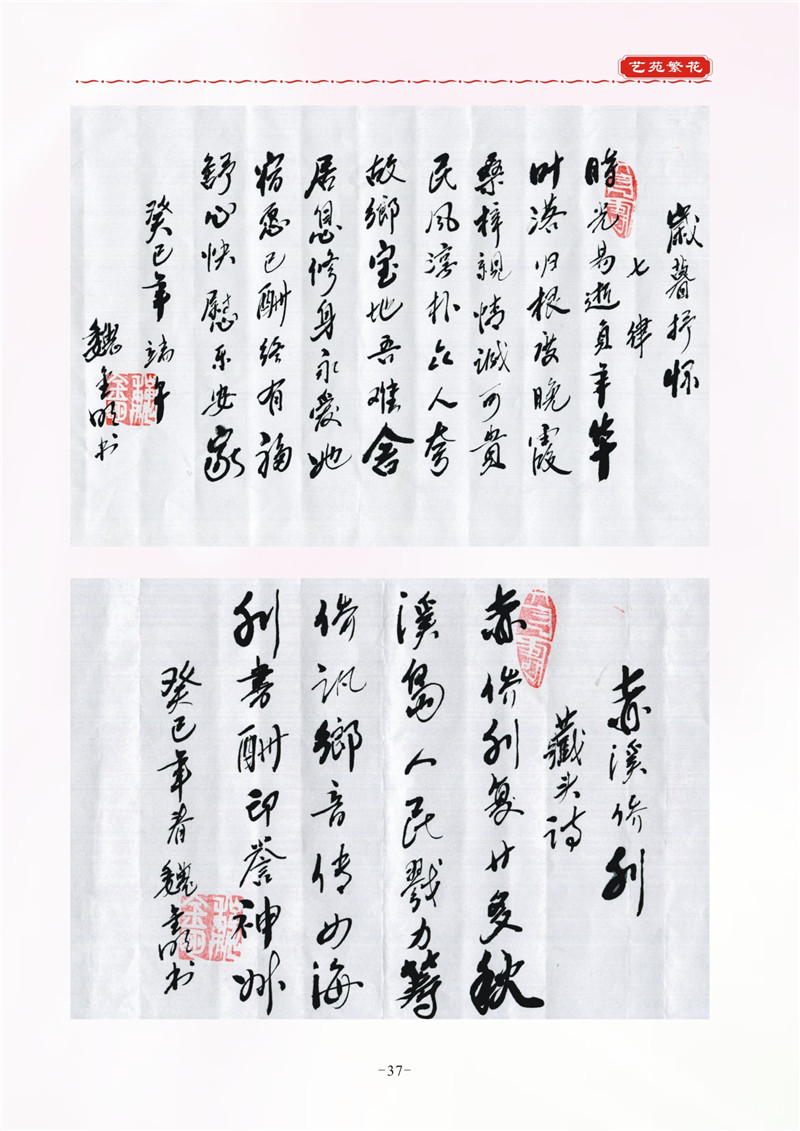 艺苑繁花
歲暮抒怀
七律
時光易逝负年华
叶落归根度晚霞
桑梓親情诚可贵
民风淳朴众人夸
故鄉宝地吾难舍
居息修身永爱她
宿愿已酬终有福
舒心快慰乐安家
癸巳年端午
魏金明书
赤溪侨刊
藏头诗
赤侨刊复廿多秋
溪島人民戮力筹
侨讯鄉音传四海
刊书酬印誉神州
癸巳年春魏金明书
-37-